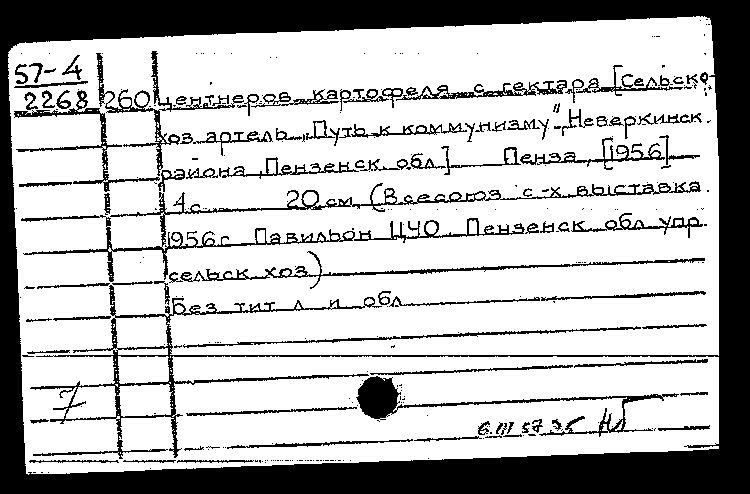 57-4
2268 260 центнеров картофеля с гектара [Сельско-
хоз артель „Путь к коммунизму", Неверкинск.
района, Пензенск. обл.] Пенза, [1956]
4 с. 20 см. (Всесоюз с-х выставка.
1956 г Павильон ЦЧО. Пензенск обл упр.
сельск хоз)
Без тит л и обл
7
6.III 57